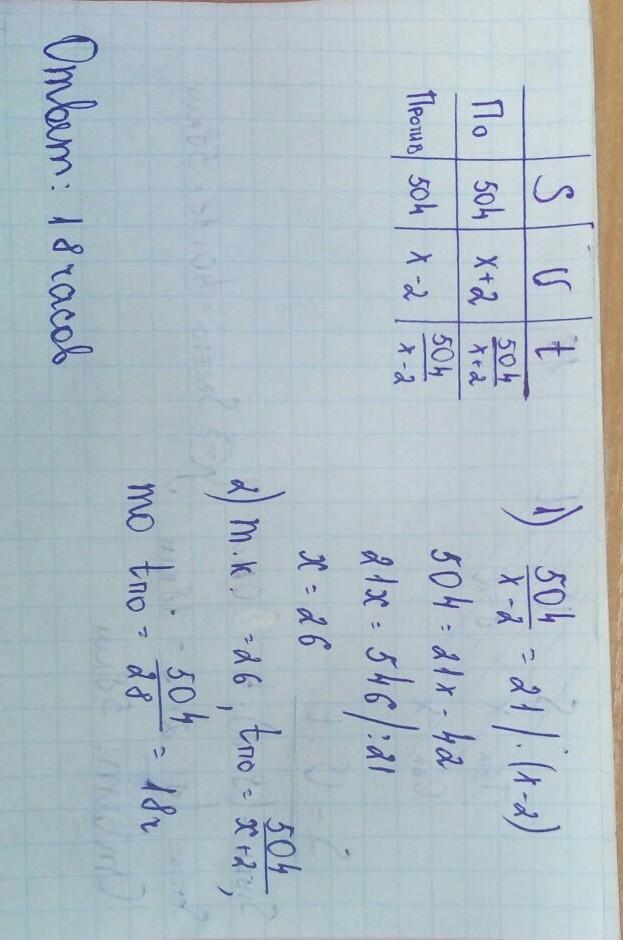 S υ t
По 504 x+2 504/(x+2)
Против 504 x-2 504/(x-2)
1) 504/(x-2) = 21 | · (x-2)
504 = 21x - 42
21x = 546 | :21
x = 26
2) т.к. = 26, tпо = 504/(x+2),
то tпо = 504/28 = 18ч
Ответ: 18 часов